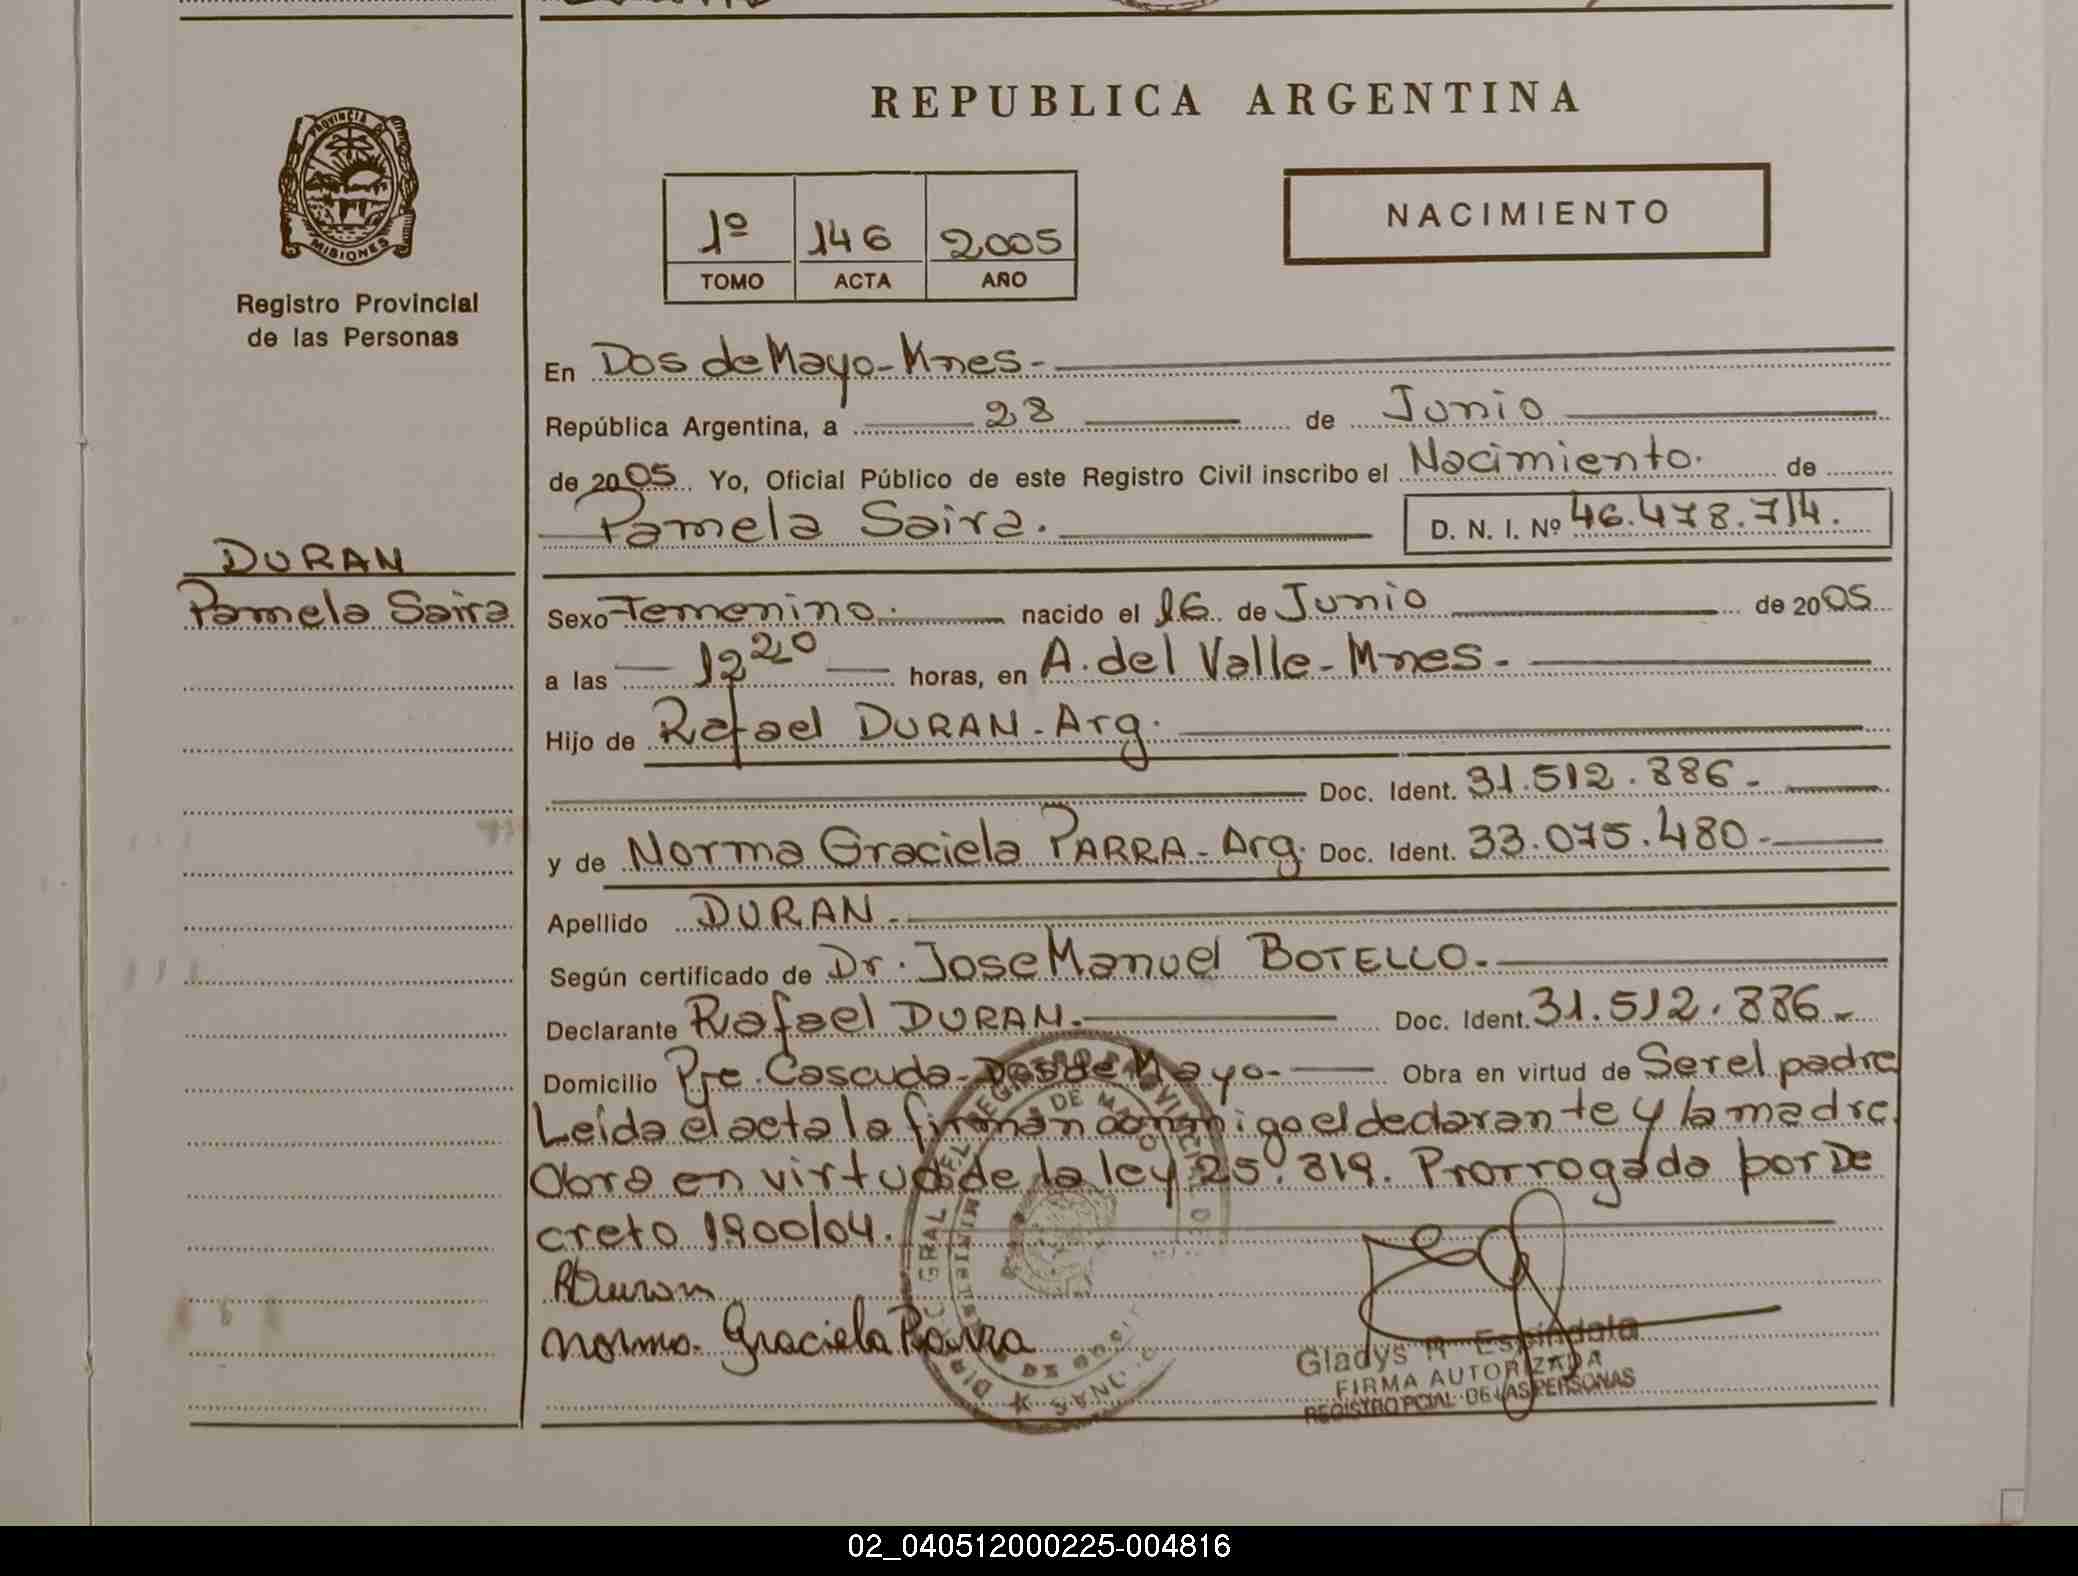 PROVINCIA DE
MISIONES
Registro Provincial
de las Personas
DURAN
Pamela Saira
REPUBLICA ARGENTINA
1º 146 2.005
TOMO ACTA AÑO
NACIMIENTO
En Dos de Mayo-Mnes-
República Argentina, a 28 de Junio
de 2005 Yo, Oficial Público de este Registro Civil inscribo el Nacimiento. de
Pamela Saira. D. N. I. Nº 46.478.714.
Sexo Femenino. nacido el 16 de Junio de 2005
a las 12 20 horas, en A. del Valle-Mnes-
Hijo de Rafael DURAN-Arg.
Doc. Ident. 31.512.886-
y de Norma Graciela PARRA-Arg. Doc. Ident. 33.075.480-
Apellido DURAN-
Según certificado de Dr. Jose Manuel BOTELLO-
Declarante Rafael DURAN- Doc. Ident. 31.512.886-
Domicilio Pje. Cascuda-Dos de Mayo- Obra en virtud de Ser el padre
Leída el acta la firman conmigo el declarante y la madre.
Obra en virtud de la ley 25.819. Prorrogada por De
creto 1900/04.
RDuran
Norma Graciela Parra
Gladys R Espíndola
FIRMA AUTORIZADA
REGISTRO PCIAL DE LAS PERSONAS
02_040512000225-004816